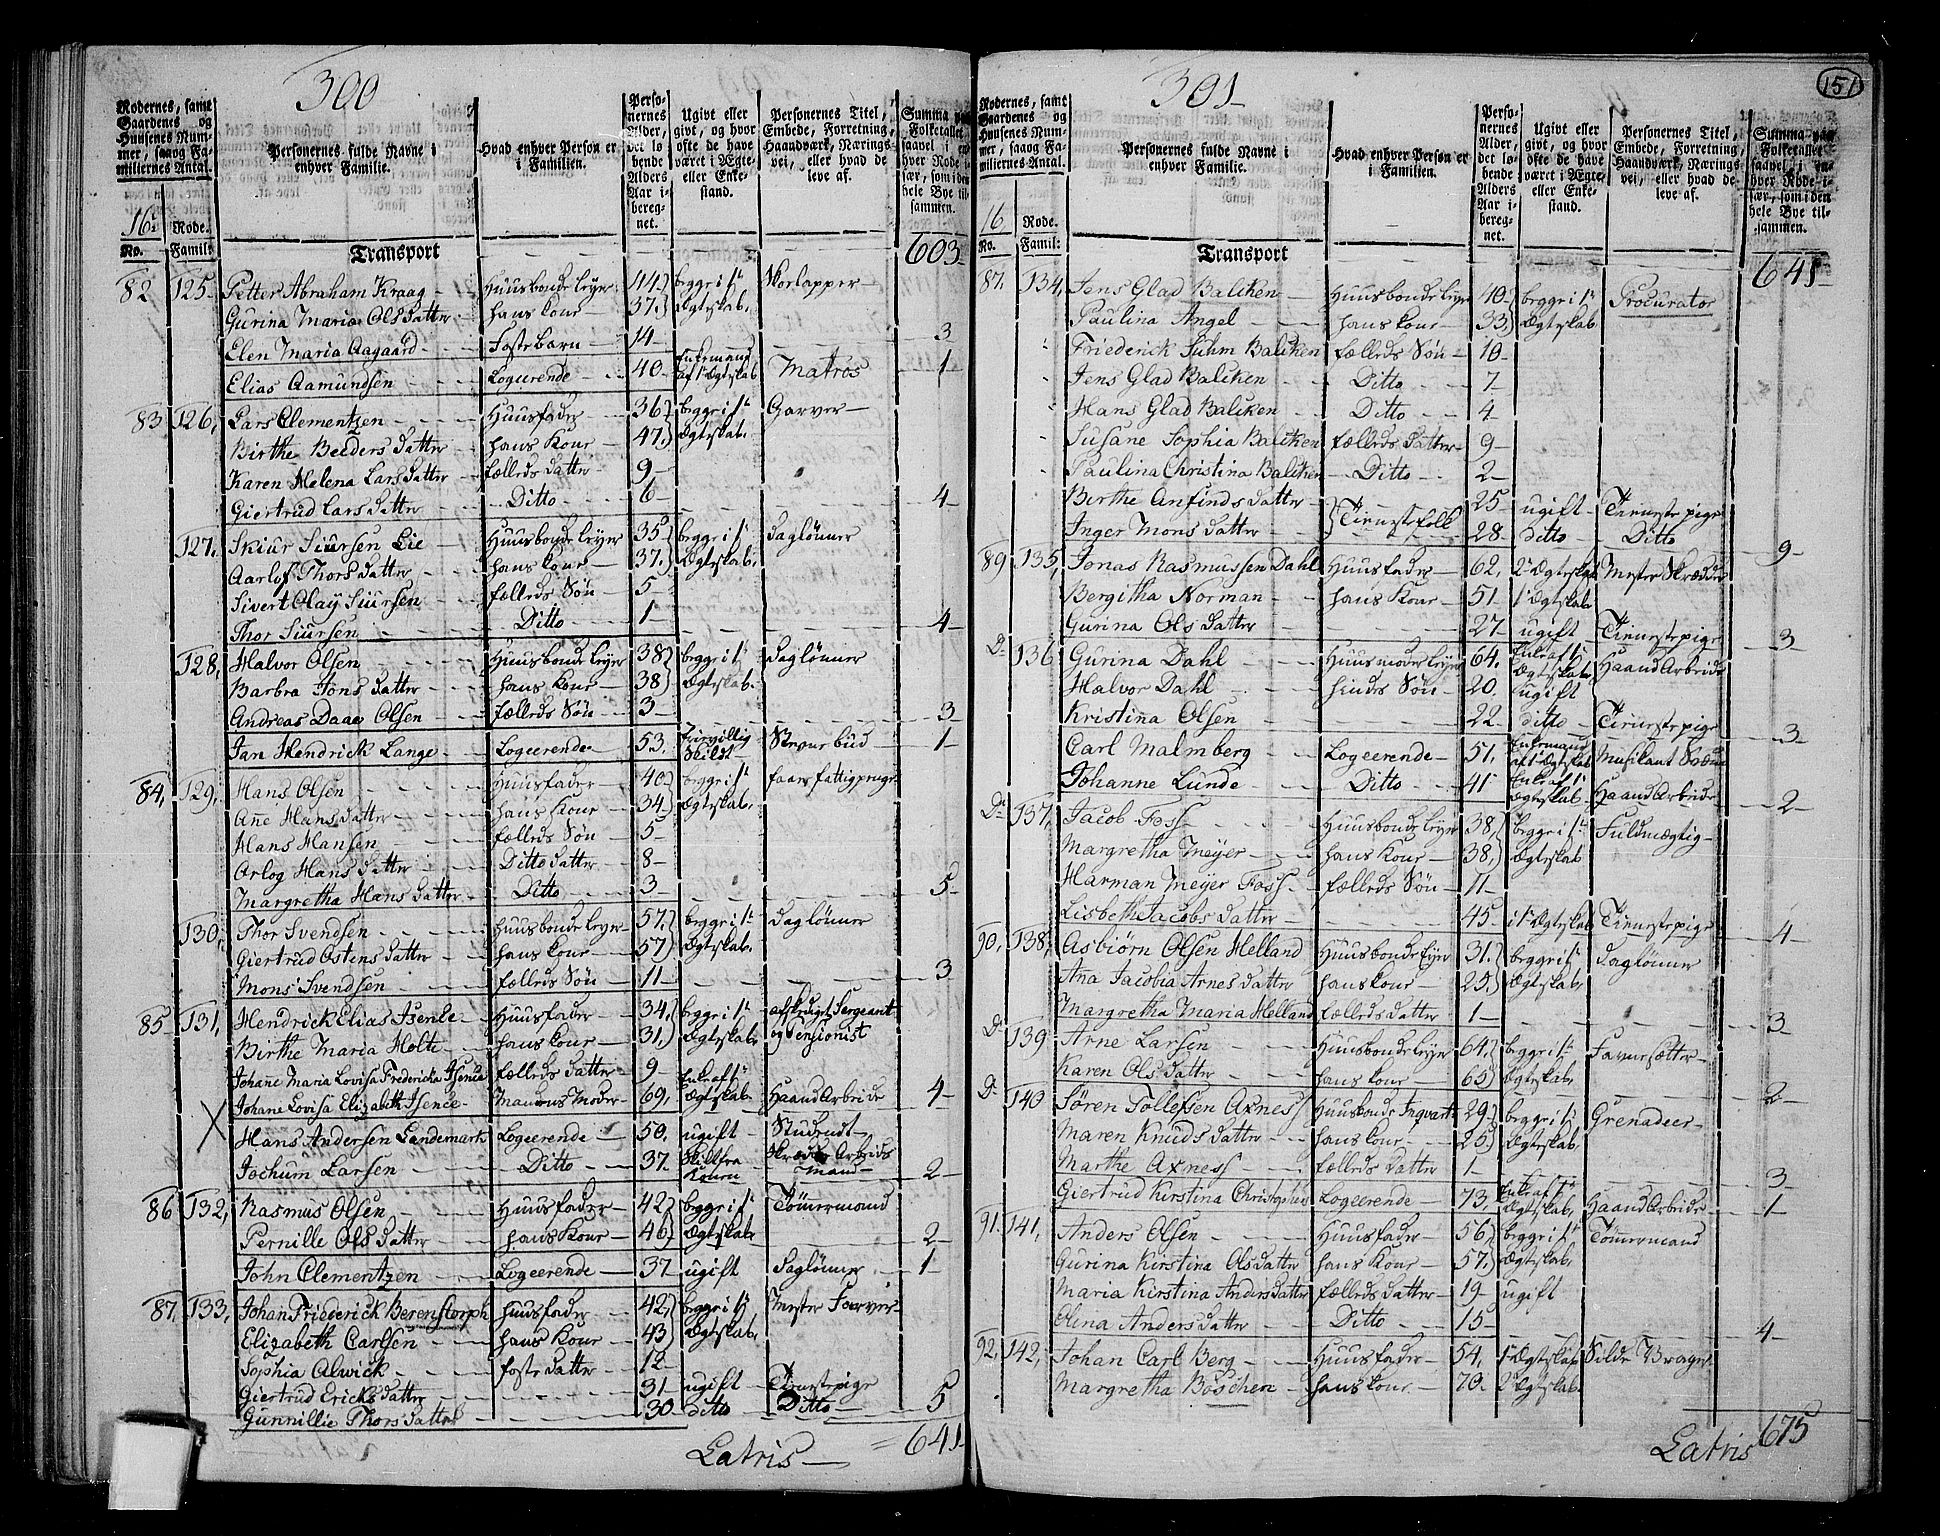 300
Rodernes, samt Gaardenes og Huusenes Nummer, saaog Familiernes Antal.
Personernes fulde Navne i enhver Familie.
Hvad enhver Person er i Familien.
Personernes Alder, det løbende Alders Aar iberegnet.
Ugivt eller givt, og hvor ofte de have været i Ægte- eller Enkestand.
Personernes Titel, Embede, Forretning, Haandværk, Næringsvei, eller hvad de leve af.
Summa paa Folketallet saavel i enhver Rode især, som i den hele Bye tilsammen.
16 Rode.
No. Famil:
Transport 603
82 125 Petter Abraham Kraag Huusbonde leyer 44 begge i 1te Ægteskab
Gurina Maria Olsdatter hans Kone 37
Elen Maria Aagaard Fosterbarn 14 3
Elias Aamundsen Logerende 40 Enkemand af 1 Ægteskab Matros 1
83 126 Lars Clementzen Huusfader 36 begge i 1te Ægteskab Garver
Birthe Datter hans Kone 47
Karen Helena Larsdatter fælleds datter 9
Giertrud Larsdatter Ditto 6 4
127 Skiur Siursen Lie Huusbonde leyer 35 begge i 1te Ægteskab daglønner
Aarlof Thorsdatter hans Kone 37
Sivert Olay Siursen fælleds Søn 5
Thor Siursen Ditto 1 4
128 Halvor Olsen Huusbonde leyer 38 begge i 1te Ægteskab daglønner
Barbra Jonsdatter hans Kone 38
Andreas Daae Olsen fælleds Søn 3 3
Jan Hendrick Lange Logeerende 53 skildt bud 1
84 129 Hans Olsen Huusfader 40 begge i 1te Ægteskab faaer fattigpenge
Ane Hansdatter hans Kone 34
Hans Hansen fælleds Søn 5
Orlog Hansdatter Ditto datter 8
Margretha Hansdatter Ditto 3 5
130 Thor Svendsen huusbonde leyer 57 begge i 1te Ægteskab daglønner
Giertrud Ostensdatter hans Kone 57
Mons Svendsen fælleds Søn 11 3
85 131 Hendrick Elias Isenle Huusfader 34 begge i 1te Ægteskab afskediget Sergeant og Pensionist
Birthe Maria Holte hans Kone 31
Johane Maria Lovisa Fredericka fælleds datter 9
Johane Lovisa Elizabeth Mandens Moder 69 Enke af 1te Ægteskab HaandArbeide 4
X Hans Andersen Landemark Logeerende 50 ugift Studendt
Jochum Larsen Ditto 37 skilt fra Konen Skrædder Arbeids mand 2
86 132 Rasmus Olsen Huusfader 42 begge i 1te Ægteskab Tømmermand
Pernille Olsdatter hans Kone 46 2
John Clementzen Logeerende 37 ugift Daglønner 1
87 133 Johan Friederick Berenstorph huusfader 42 begge i 1te Ægteskab Mester Farver
Elizabeth Carlsen hans Kone 43
Sophia Alwick foster datter 12
Giertrud Ericksdatter 31 ugift Tienestepige
Gunnillie Thorsdatter 30 ditto Ditto 5
Latris 641
151
301
Rodernes, samt Gaardenes og Huusenes Nummer, saaog Familiernes Antal.
Personernes fulde Navne i enhver Familie.
Hvad enhver Person er i Familien.
Personernes Alder, det løbende Alders Aar iberegnet.
Ugivt eller givt, og hvor ofte de have været i Ægte- eller Enkestand.
Personernes Titel, Embede, Forretning, Haandværk, Næringsvei, eller hvad de leve af.
Summa paa Folketallet saavel i enhver Rode især, som i den hele Bye tilsammen.
16 Rode.
No. Famil:
Transport 641
87 134 Jens Glad Balcken Huusbonde leyer 40 begge i 1te Ægteskab Procurator
Paulina Angel hans Kone 33
Friederick Suhm Balcken fælleds Søn 10
Jens Glad Balcken Ditto 7
Hans Glad Balcken Ditto 4
Susane Sophia Balcken fælleds datter 9
Paulina Christina Balcken Ditto 2
Berthe Anfindsdatter Tienestefolk 25 ugift Tienestepige
Inger Monsdatter 28 ditto Ditto 9
89 135 Jonas Rasmussen Dahl Huusfader 62 2 Ægteskab Mester Skrædder
Bergitha Norman hans Kone 51 1 Ægteskab
Gurina Olsdatter 27 ugift Tienestepige 3
Do 136 Gurina Dahl Huusmoder leyer 64 Enke af 1 Ægteskab HaandArbeide
Halvor Dahl hindes Søn 20 ugift
Kristina Olsen 22 ditto Tienestepige 3
Carl Malmberg Logeerende 51 Enkemand af 1 Ægteskab Musikant
Johanne Lunde Ditto 41 Enke af 1 Ægteskab HaandArbeide 2
Do 137 Jacob Foss Huusbonde leyer 38 begge i 1te Ægteskab Fuldmægtig
Margretha Meyer hans Kone 38
Harman Meyer Foss fælleds Søn 11
Lisbeth Jacobsdatter 45 i 1 Ægteskab Tienestepige 4
90 138 Asbiørn Olsen Helland Huusbonde leyer 31 begge i 1te Ægteskab daglønner
Ana Jacobia Arnesdatter hans Kone 25
Margretha Maria Helland fælleds datter 1 3
Do 139 Arne Larsen Huusbonde leyer 64 begge i 1te Ægteskab
Karen Olsdatter hans Kone 65 2
Do 140 Søren Tollefsen Axness Huusbonde Inqvart 29 begge i 1te Ægteskab Grenadeer
Maren Knudsdatter hans Kone 25
Marthe Axness fælleds datter 1 3
Giertrud Kirstina Logeerende 73 Enke af 1 Ægteskab HaandArbeide 1
91 141 Anders Olsen Huusfader 56 begge i 1te Ægteskab Tømmermand
Gurina Kirstina Olsdatter hans Kone 57
Maria Kirstina Andersdatter fælleds datter 19 ugift
Elina Andersdatter Ditto 15 4
92 142 Johan Carl Berg Huusfader 54 1 Ægteskab Silde Vrager
Margretha Böschen hans Kone 70 2 Ægteskab
Latris 675